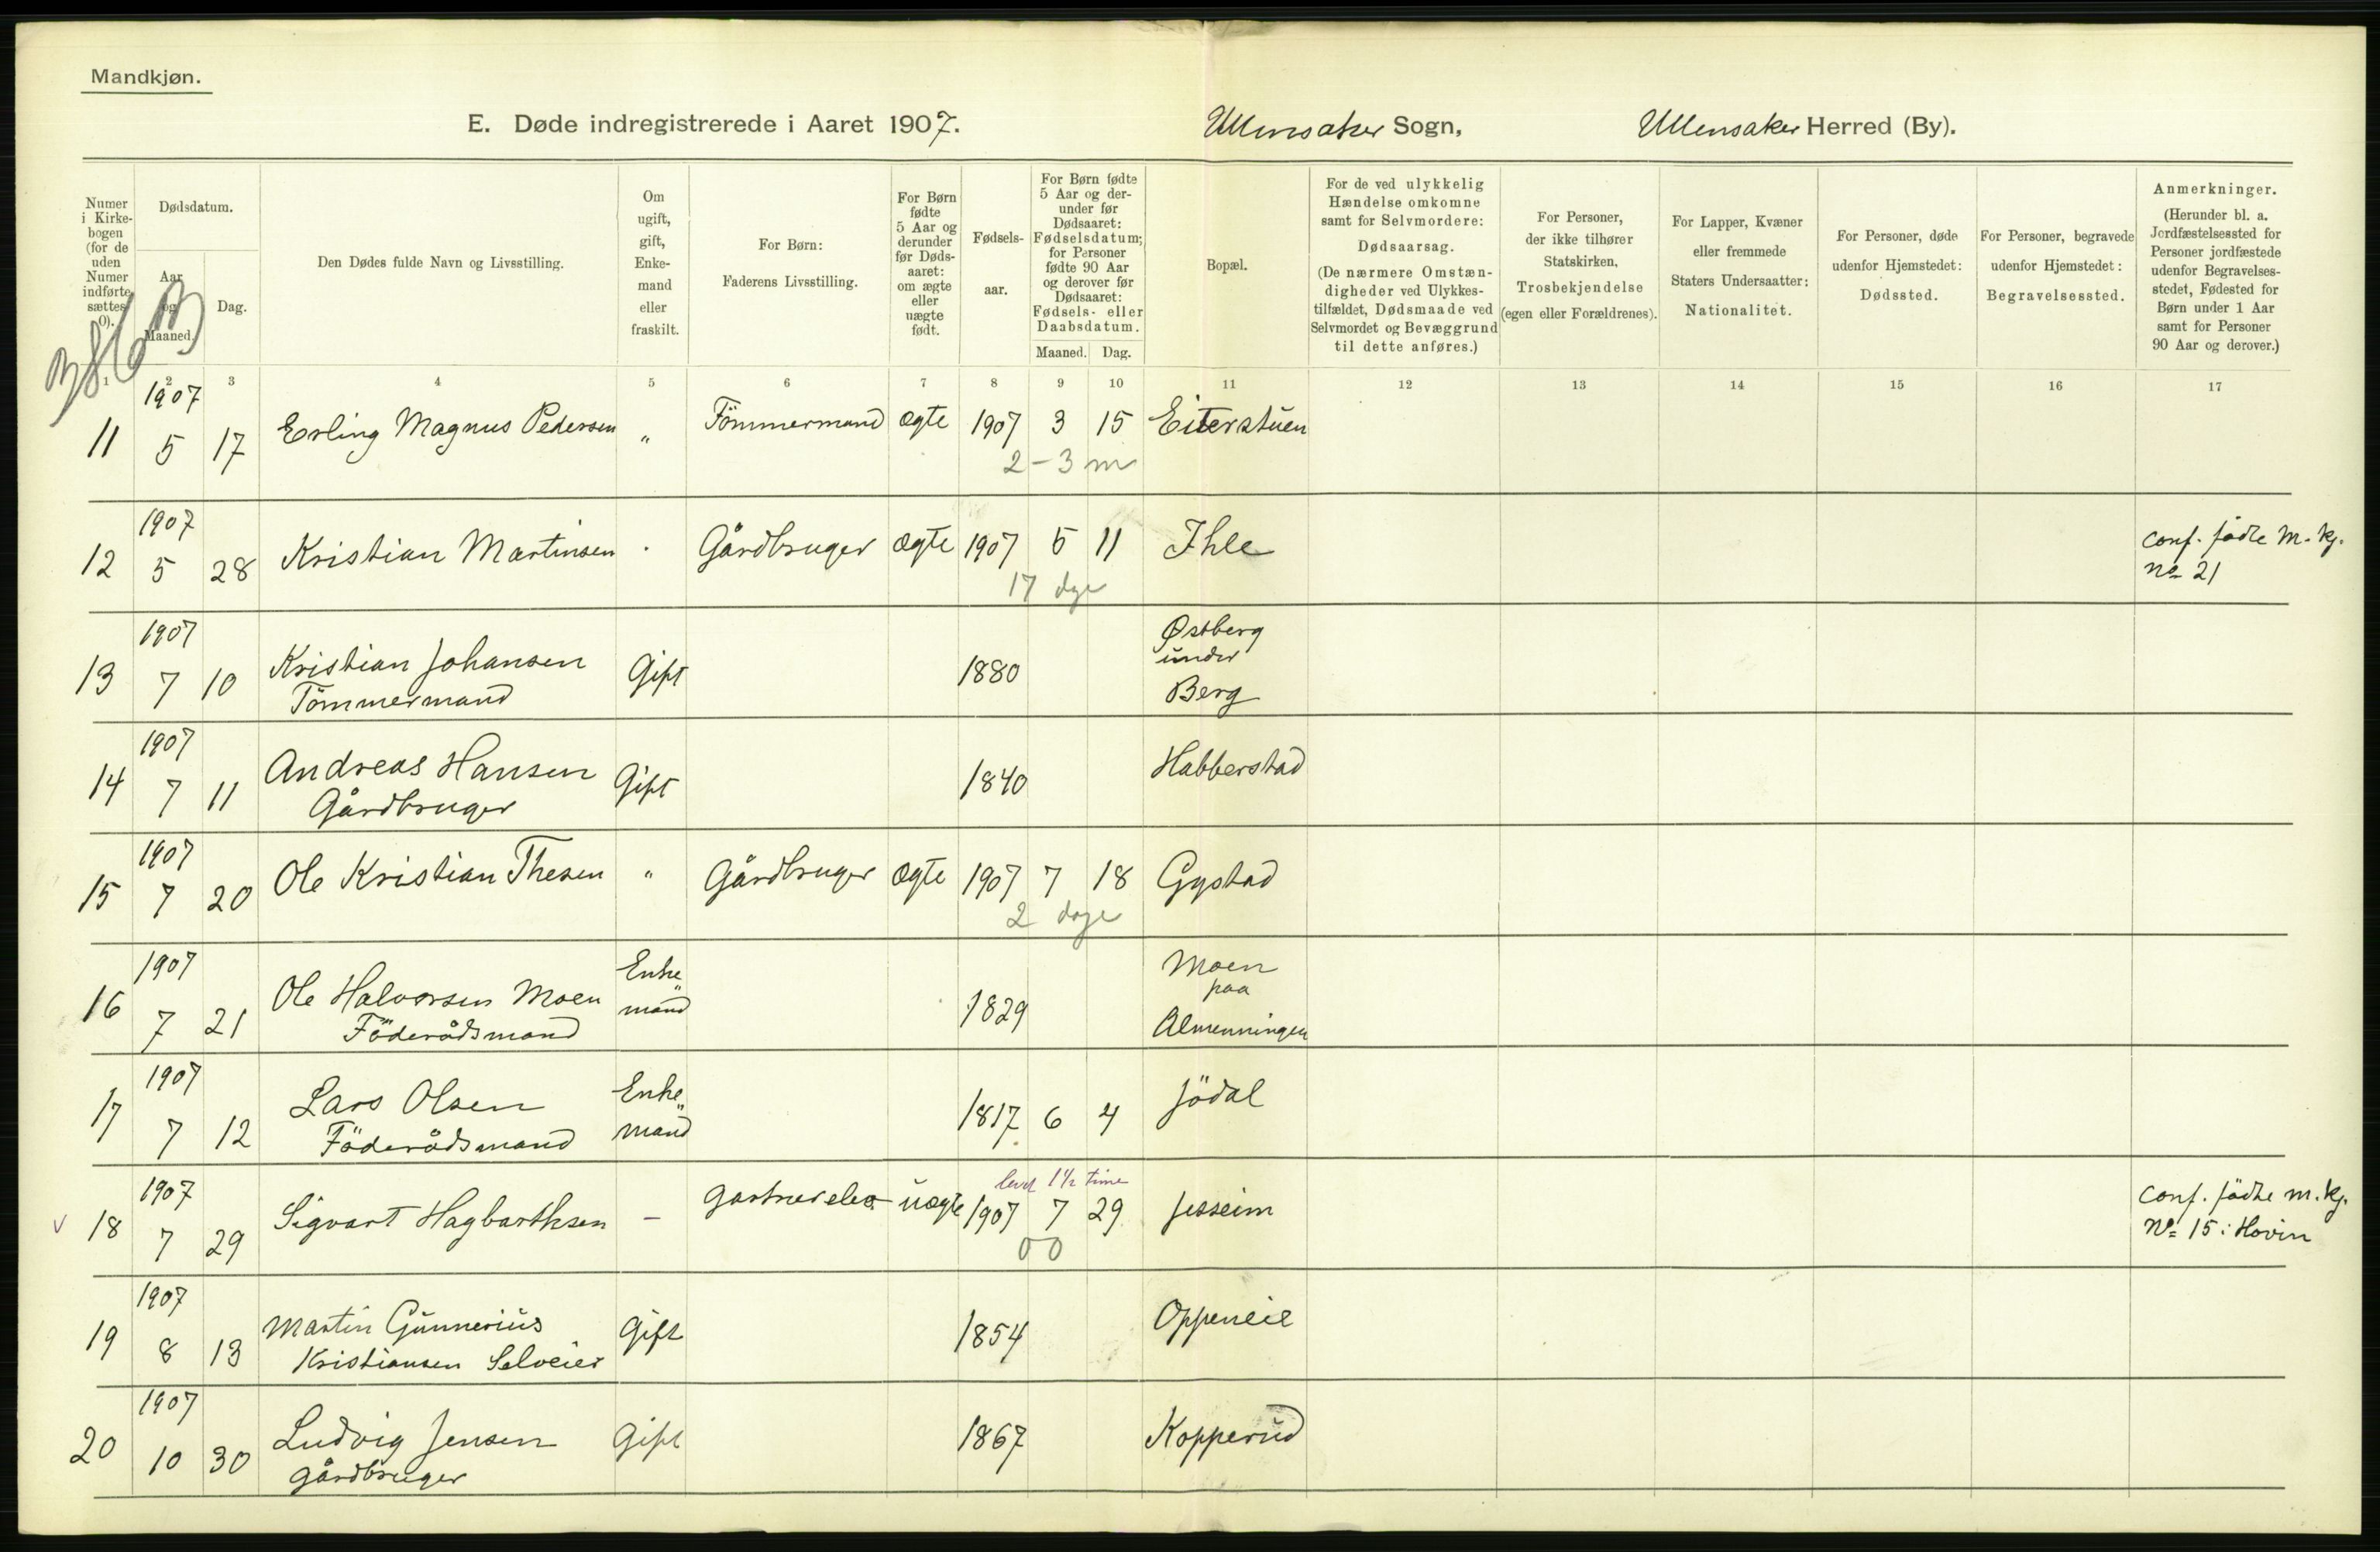 Mandkjøn.
E. Døde indregistrerede i Aaret 1907. Ullensaker Sogn, Ullensaker Herred (By).
Numer i Kirke-bogen (for de uden Numer indførte sættes 0).
Dødsdatum.
Aar og Maaned.
Dag.
Den Dødes fulde Navn og Livsstilling.
Om ugift, gift, Enke-mand eller fraskilt.
For Børn: Faderens Livsstilling.
For Børn fødte 5 Aar og derunder før Døds-aaret: om ægte eller uægte født.
Fødsels-aar.
For Børn fødte 5 Aar og der-under før Dødsaaret: Fødselsdatum; for Personer fødte 90 Aar og derover før Dødsaaret: Fødsels- eller Daabsdatum.
Maaned. Dag.
Bopæl.
For de ved ulykkelig Hændelse omkomne samt for Selvmordere: Dødsaarsag. (De nærmere Omstæn-digheder ved Ulykkes-tilfældet, Dødsmaade ved Selvmordet og Bevæggrund til dette anføres.)
For Personer, der ikke tilhører Statskirken, Trosbekjendelse (egen eller Forældrenes).
For Lapper, Kvæner eller fremmede Staters Undersaatter: Nationalitet.
For Personer, døde udenfor Hjemstedet: Dødssted.
For Personer, begravede udenfor Hjemstedet: Begravelsessted.
Anmerkninger. (Herunder bl. a. Jordfæstelsessted for Personer jordfæstede udenfor Begravelses-stedet, Fødested for Børn under 1 Aar samt for Personer 90 Aar og derover.)
1 2 3 4 5 6 7 8 9 10 11 12 13 14 15 16 17
1907
11 5 17 Erling Magnus Pedersen " Tömmermand ægte 1907 3 15 Eiterstuen
2-3 m
1907
12 5 28 Kristian Martinsen . Gårdbruger ægte 1907 5 11 Ihle conf. födte M. kj.
17 dge no 21
1907 Østberg
13 7 10 Kristian Johansen Gift 1880 under
Tömmermand Berg
1907
14 7 11 Andreas Hansen Gift 1840 Habberstad
Gårdbruger
1907
15 7 20 Ole Kristian Thesen " Gårdbruger ægte 1907 7 18 Gystad
2 dage
1907 Enke„ Moen
16 7 21 Ole Halvorsen Moen mand 1829 paa
Föderådsmand Almenningen
1907 Enke„
17 7 12 Lars Olsen mand 1817 6 4 Jödal
Föderådsmand
1907 levet 1½ time
18 7 29 Sigvart Hagbarthsen - uægte 1907 7 29 Jesseim conf. födte m. kj.
00 No 15: Hovin
1907
19 8 13 Martin Gunnerius Gift 1854
Kristiansen Selveier
1907
20 10 30 Ludvig Jensen Gift 1867 Kopperud
gårdbruger